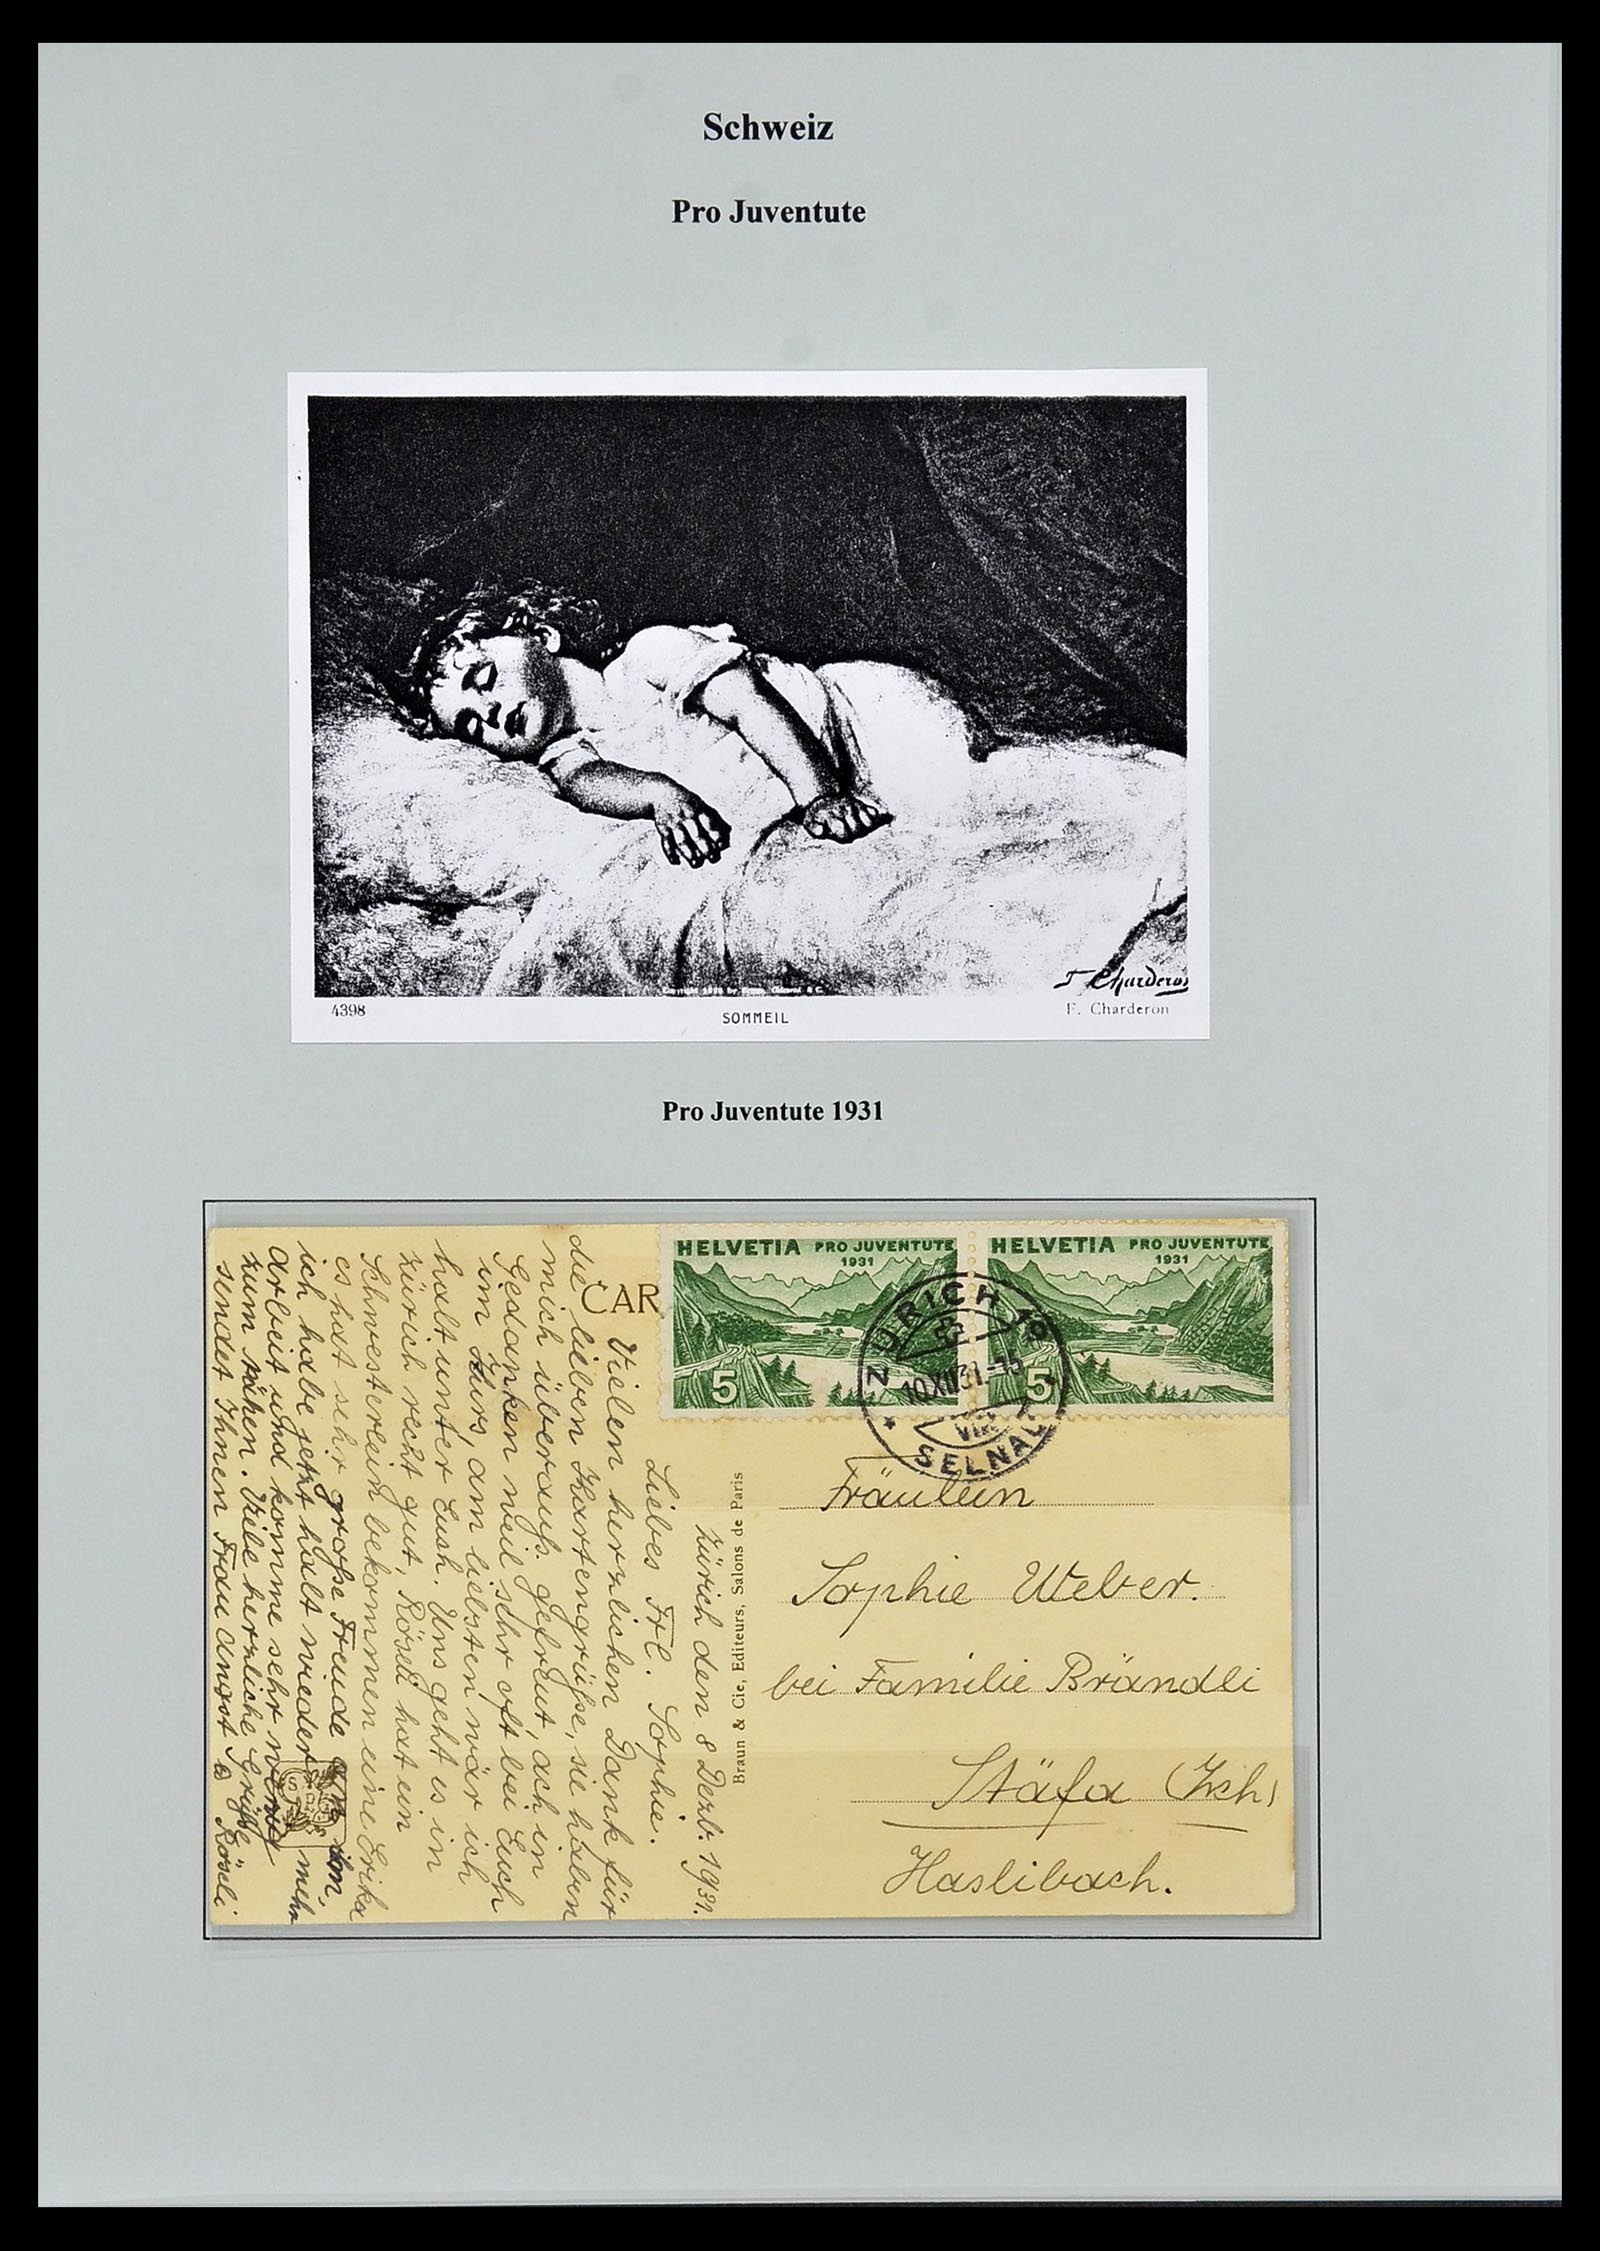 Schweiz
Pro Juventute
F. Charderon
4398
SOMMEIL
F. Charderon
Pro Juventute 1931
CAR
HELVETIA PRO JUVENTUTE
1931
5
HELVETIA PRO JUVENTUTE
1931
5
ZÜRICH
10.XII.31.
SELNAU
Zürich den 8 Dezb. 1931.
Liebes Frl. Sophie.
Vielen herzlichen Dank für
die lieben Kartengrüsse, sie haben
mich überaus gefreut, ach in
Gedanken weil sehr oft bei Euch
im Kurs, am liebsten wär ich
halt unter Euch. Uns geht es in
Zürich recht gut, Röseli hat ein
Schwesterlein bekommen eine Erika
es hat sehr grosse Freude an ihm,
ich habe jetzt halt wieder mehr
Arbeit und komme sehr wenig
zum nähen. Viele herzliche Grüsse
sendet Ihnen Frau Angst & Röseli
Braun & Cie, Editeurs, Salons de Paris
Fräulein
Sophie Weber.
bei Familie Brändli
Stäfa (Zch)
Haslibach.